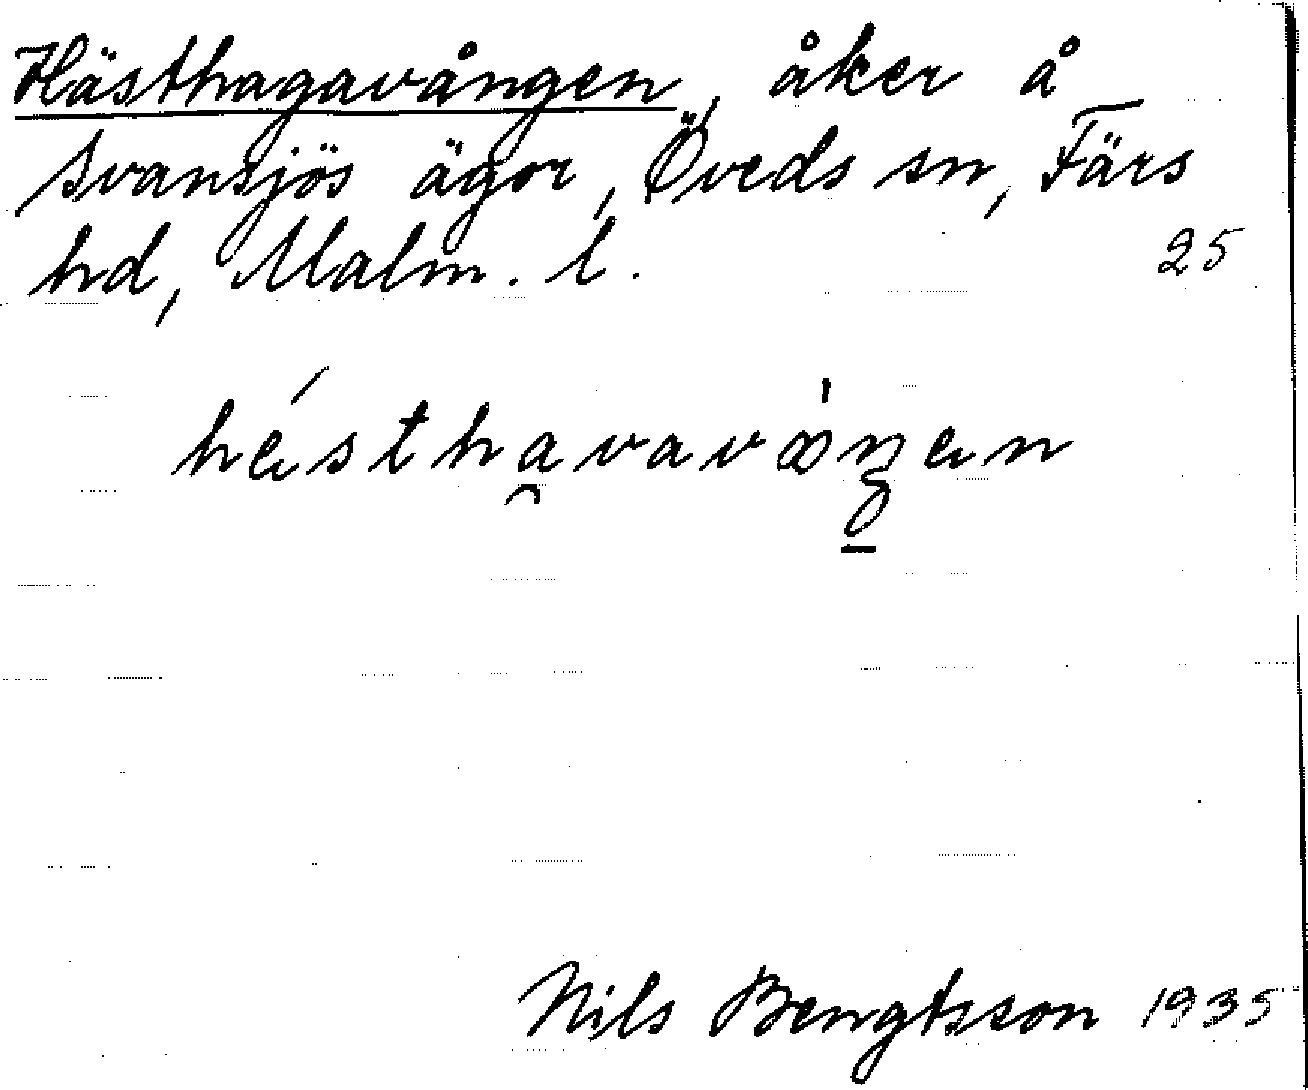 Hästhagavången, åker å
Svansjös ägor, Öveds sn, Färs
hd, Malm. l. 25
Nils Bengtsson 1935